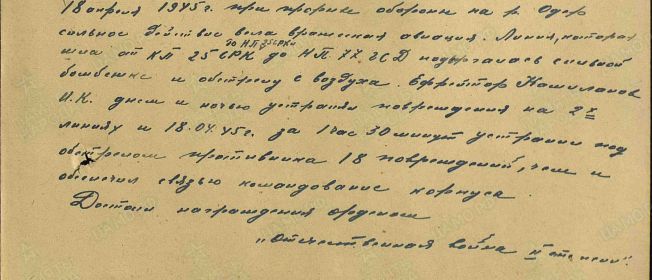 18 апреля 1945 г. при прорыве обороны на р. Одер
сильное действие вела вражеская авиация. Линия, которая
до НП 25 СРК и
шла от КП 25 СРК до НП. 77. ГСД подвергалась сильной
бомбежке и обстрелу с воздуха. Ефрейтор
И.К. днем и ночью устранял повреждения на 2х
линиях и 18.04.45 г. за 1 час 30 минут устранил под
обстрелом противника 18 повреждений, чем и
обеспечил связью командование корпуса.
Достоин награждения орденом
„Отечественная война II степени".